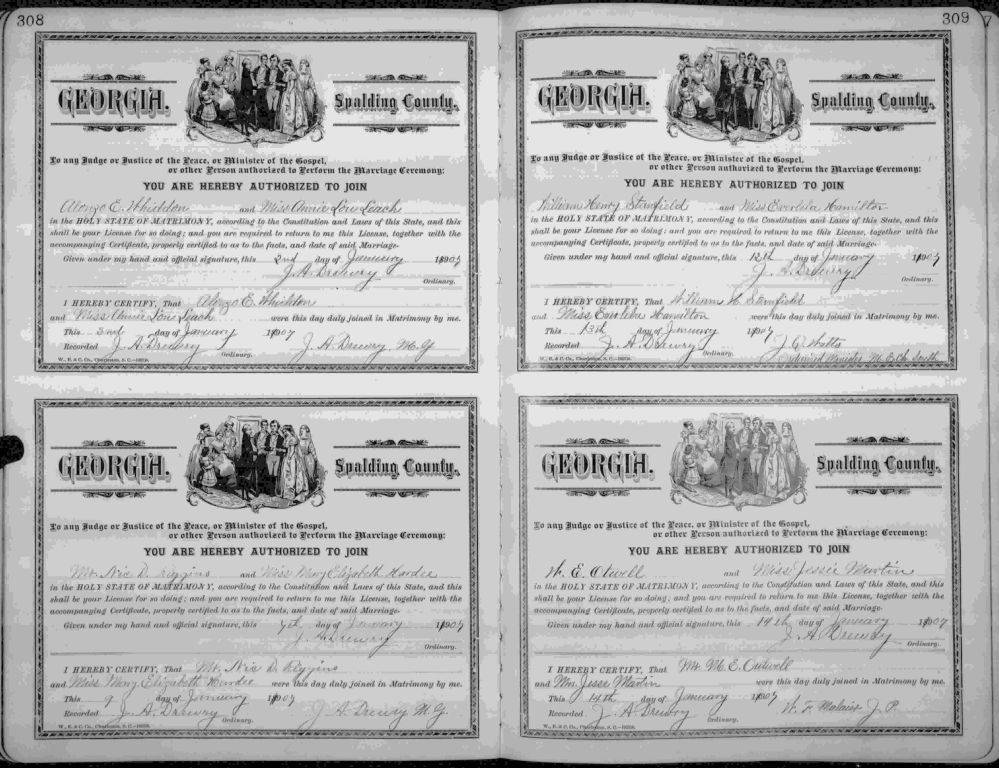 308
GEORGIA. Spalding County.
To any Judge or Justice of the Peace, or Minister of the Gospel,
or other Person authorized to Perform the Marriage Ceremony:
YOU ARE HEREBY AUTHORIZED TO JOIN
Alonzo E. Whieldon and Miss Annie Lou Leach
in the HOLY STATE OF MATRIMONY, according to the Constitution and Laws of this State, and this
shall be your License for so doing; and you are required to return to me this License, together with the
accompanying Certificate, properly certified to as to the facts, and date of said Marriage.
Given under my hand and official signature, this 2nd day of January 1907
J. A. Drewry
Ordinary.
I HEREBY CERTIFY, That Alonzo E. Whieldon
and Miss Annie Lou Leach were this day duly joined in Matrimony by me.
This 2nd day of January 1907
Recorded J. A. Drewry Ordinary. J. A. Drewry, M. G.
W., E. & C. Co., Charleston, S. C.
GEORGIA. Spalding County.
To any Judge or Justice of the Peace, or Minister of the Gospel,
or other Person authorized to Perform the Marriage Ceremony:
YOU ARE HEREBY AUTHORIZED TO JOIN
Mr. D. and Miss Mary Elizabeth Hardee
in the HOLY STATE OF MATRIMONY, according to the Constitution and Laws of this State, and this
shall be your License for so doing; and you are required to return to me this License, together with the
accompanying Certificate, properly certified to as to the facts, and date of said Marriage.
Given under my hand and official signature, this day of January 1907
J. A. Drewry
Ordinary.
I HEREBY CERTIFY, That Mr. D.
and Miss Mary Elizabeth Hardee were this day duly joined in Matrimony by me.
This 9 day of January 1907
Recorded J. A. Drewry Ordinary. J. A. Drewry M. G.
W., E. & C. Co., Charleston, S. C.
309
GEORGIA. Spalding County.
To any Judge or Justice of the Peace, or Minister of the Gospel,
or other Person authorized to Perform the Marriage Ceremony:
YOU ARE HEREBY AUTHORIZED TO JOIN
William Henry Stanfield and Miss Hamilton
in the HOLY STATE OF MATRIMONY, according to the Constitution and Laws of this State, and this
shall be your License for so doing; and you are required to return to me this License, together with the
accompanying Certificate, properly certified to as to the facts, and date of said Marriage.
Given under my hand and official signature, this 12th day of January 1907
J. A. Drewry
Ordinary.
I HEREBY CERTIFY, That William H Stanfield
and Miss Hamilton were this day duly joined in Matrimony by me.
This 13th day of January 1907
Recorded J. A. Drewry Ordinary. J. Q. Watts
W., E. & C. Co., Charleston, S. C. Ordained Minister M. E. Ch. South
GEORGIA. Spalding County.
To any Judge or Justice of the Peace, or Minister of the Gospel,
or other Person authorized to Perform the Marriage Ceremony:
YOU ARE HEREBY AUTHORIZED TO JOIN
W. E. Otwell and Miss Jessie Martin
in the HOLY STATE OF MATRIMONY, according to the Constitution and Laws of this State, and this
shall be your License for so doing; and you are required to return to me this License, together with the
accompanying Certificate, properly certified to as to the facts, and date of said Marriage.
Given under my hand and official signature, this 14th day of January 1907
J. A. Drewry
Ordinary.
I HEREBY CERTIFY, That Mr. E. Outwell
and Jesse Martin were this day duly joined in Matrimony by me.
This 14th day of January 1907
Recorded J. A Drewry Ordinary. W. F. Malaier J. P.
W., E. & C. Co., Charleston, S. C.